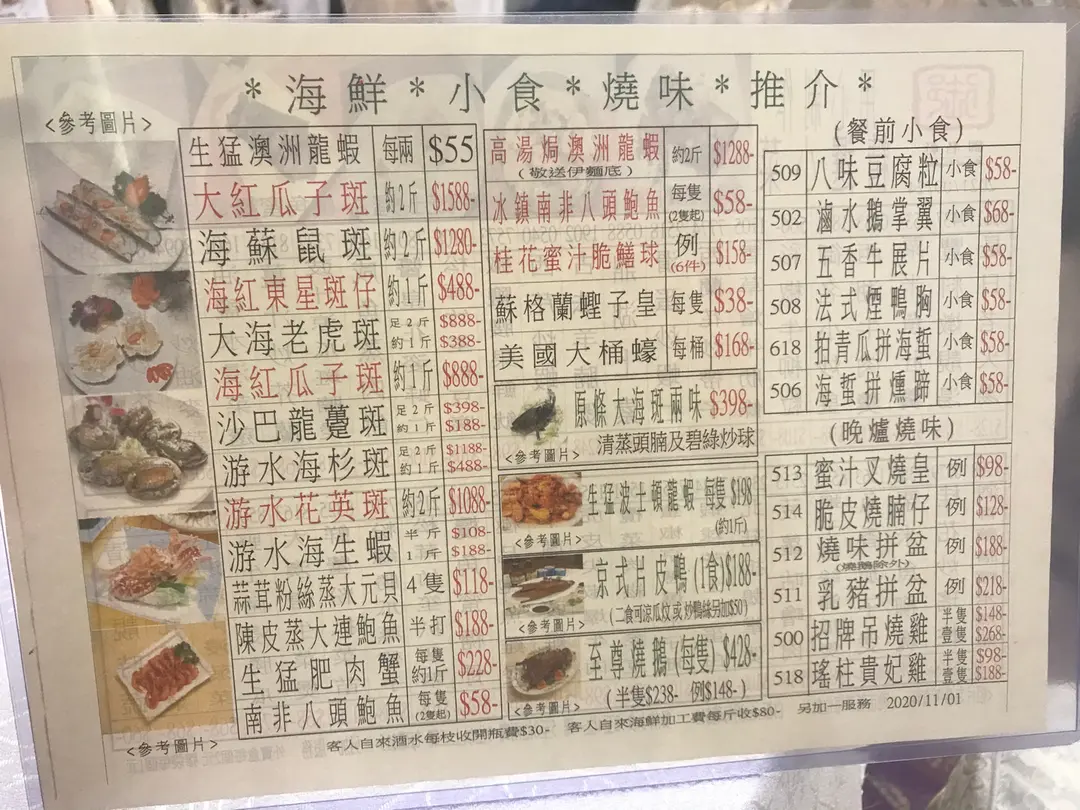 *海鮮*小食*燒味*推介*
<參考圖片>
生猛澳洲龍蝦 每兩 $55
大紅瓜子斑 約2斤 $1588-
海蘇鼠斑 約2斤 $1280-
海紅東星斑仔 約1斤 $488-
大海老虎斑 足2斤 $888-
約1斤 $388-
海紅瓜子斑 約1斤 $888-
沙巴龍躉斑 足2斤 $398-
約1斤 $188-
游水海杉斑 足2斤 $1188-
約1斤 $488-
游水花英斑 約2斤 $1088-
游水海生蝦 半斤 $108-
1斤 $188-
蒜茸粉絲蒸大元貝 4隻 $118-
陳皮蒸大連鮑魚 半打 $188-
生猛肥肉蟹 每隻約1斤 $228-
南非八頭鮑魚 每隻(2隻起) $58-
<參考圖片>
高湯焗澳洲龍蝦 約2斤 $1288-
(敬送伊麵底)
冰鎮南非八頭鮑魚 每隻(2隻起) $58-
桂花蜜汁脆鱔球 例(6件) $158-
蘇格蘭蟶子皇 每隻 $38-
美國大桶蠔 每桶 $168-
原條大海斑兩味 $398-
清蒸頭腩及碧綠炒球
<參考圖片>
生猛波士頓龍蝦 每隻 $198
(約1斤)
<參考圖片>
京式片皮鴨 (1食)$188-
(二食可涼瓜炆或炒鴨絲另加$50)
<參考圖片>
至尊燒鵝 (每隻) $428-
(半隻$238- 例$148-)
<參考圖片>
(餐前小食)
509 八味豆腐粒 小食 $58-
502 滷水鵝掌翼 小食 $68-
507 五香牛展片 小食 $58-
508 法式煙鴨胸 小食 $58-
618 拍青瓜拼海蜇 小食 $58-
506 海蜇拼燻蹄 小食 $58-
(晚爐燒味)
513 蜜汁叉燒皇 例 $98-
514 脆皮燒腩仔 例 $128-
512 燒味拼盆 例 $188-
(燒鵝除外)
511 乳豬拼盆 例 $218-
500 招牌吊燒雞 半隻 $148-
壹隻 $268-
518 瑤柱貴妃雞 半隻 $98-
壹隻 $188-
客人自來酒水每枝收開瓶費$30- 客人自來海鮮加工費每斤收$80- 另加一服務 2020/11/01